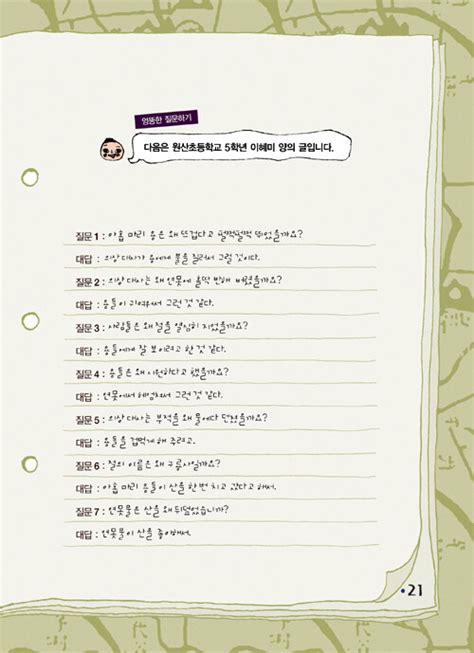 엉뚱한 질문하기
다음은 원산초등학교 5학년 이혜미 양의 글입니다.
질문 1 : 아홉 마리 용은 왜 뜨겁다고 펄쩍펄쩍 뛰었을까요?
대답 : 의상 대사가 용에게 불을 질러서 그럴 것이다.
질문 2 : 의상 대사는 왜 연못에 홀딱 반해 버렸을까요?
대답 : 용들이 귀여워서 그런 것 같다.
질문 3 : 사람들은 왜 절을 열심히 지었을까요?
대답 : 용들에게 잘 보이려고 한 것 같다.
질문 4 : 용들은 왜 시원하다고 했을까요?
대답 : 연못에서 헤엄쳐서 그런 것 같다.
질문 5 : 의상 대사는 부적을 왜 물에다 던졌을까요?
대답 : 용들을 겁먹게 해 주려고.
질문 6 : 절의 이름은 왜 구룡사일까요?
대답 : 아홉 마리 용들이 산을 한 번 치고 갔다고 해서.
질문 7 : 연못물은 산을 왜 뒤덮었습니까?
대답 : 연못물이 산을 좋아해서.
•21